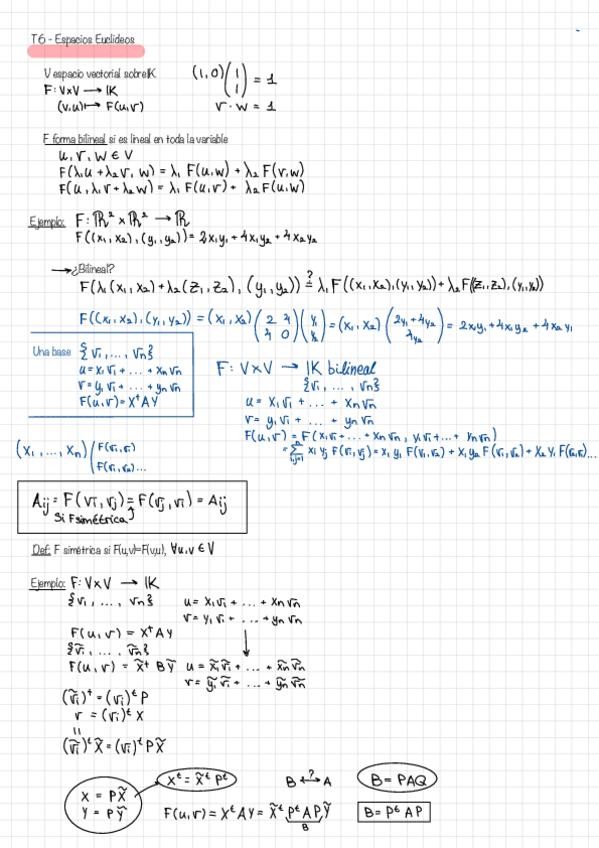 T6 - Espacios Euclídeos
V espacio vectorial sobre IK
F: V×V → IK
(v,u) ↦ F(u,v)
(1,0)(1 1) = 1
v·w = 1
F forma bilineal si es lineal en toda la variable
u, v, w ∈ V
F(λ₁u + λ₂v, w) = λ₁ F(u,w) + λ₂ F(v,w)
F(u, λ₁v + λ₂w) = λ₁ F(u,v) + λ₂ F(u,w)
Ejemplo: F: ℝ² × ℝ² → ℝ
F((x₁,x₂),(y₁,y₂)) = 2x₁y₁ + 4x₁y₂ + 4x₂y₂
→ ¿Bilineal?
F(λ₁(x₁,x₂) + λ₂(z₁,z₂), (y₁,y₂)) ≟ λ₁F((x₁,x₂),(y₁,y₂)) + λ₂F((z₁,z₂),(y₁,y₂))
F((x₁,x₂),(y₁,y₂)) = (x₁,x₂)(2 4 4 0)(y₁ y₂) = (x₁,x₂)(2y₁+4y₂ 4y₂) = 2x₁y₁ + 4x₁y₂ + 4x₂y₁
Una base {v₁, ..., vₙ}
u = x₁v₁ + ... + xₙvₙ
v = y₁v₁ + ... + yₙvₙ
F(u,v) = Xᵗ A Y
F: V×V → IK bilineal
{v₁, ..., vₙ}
u = x₁v₁ + ... + xₙvₙ
v = y₁v₁ + ... + yₙvₙ
F(u,v) = F(x₁v₁ + ... + xₙvₙ, y₁v₁ + ... + yₙvₙ)
= Σ xᵢyⱼ F(vᵢ,vⱼ) = x₁y₁ F(v₁,v₂) + x₁y₂ F(v₁,v₂) + x₂y₁
(x₁, ..., xₙ)(F(v₁,v₁)
F(v₁,v₂)...
Aᵢⱼ = F(vᵢ,vⱼ) = F(vⱼ,vᵢ) = Aᵢⱼ
Si F simétrica
Def: F simétrica si F(u,v)=F(v,u), ∀u,v ∈ V
Ejemplo: F: V×V → IK
{v₁, ..., vₙ}
u = x₁v₁ + ... + xₙvₙ
v = y₁v₁ + ... + yₙvₙ
F(u,v) = Xᵗ A Y
{ṽ₁, ..., ṽₙ}
F(u,v) = X̃ᵗ B Ỹ
u = x̃₁ṽ₁ + ... + x̃ₙṽₙ
v = ỹ₁ṽ₁ + ... + ỹₙṽₙ
(ṽᵢ)ᵗ = (vᵢ)ᵗ P
v = (vᵢ)ᵗ X
=
(ṽᵢ)ᵗ X̃ = (vᵢ)ᵗ P X̃
X = P X̃
Y = P Ỹ
Xᵗ = X̃ᵗ Pᵗ
B ⟷? A
B = PAQ
F(u,v) = Xᵗ A Y = X̃ᵗ Pᵗ A P Ỹ
B
B = Pᵗ A P